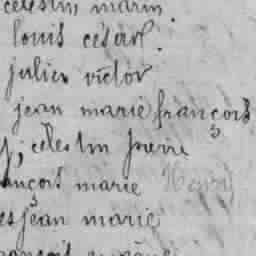 célestin marin.
louis césar.
julien victor
jean marie françois
célestin pierre
ançois marie Henry
es jean marie
ançois eugène